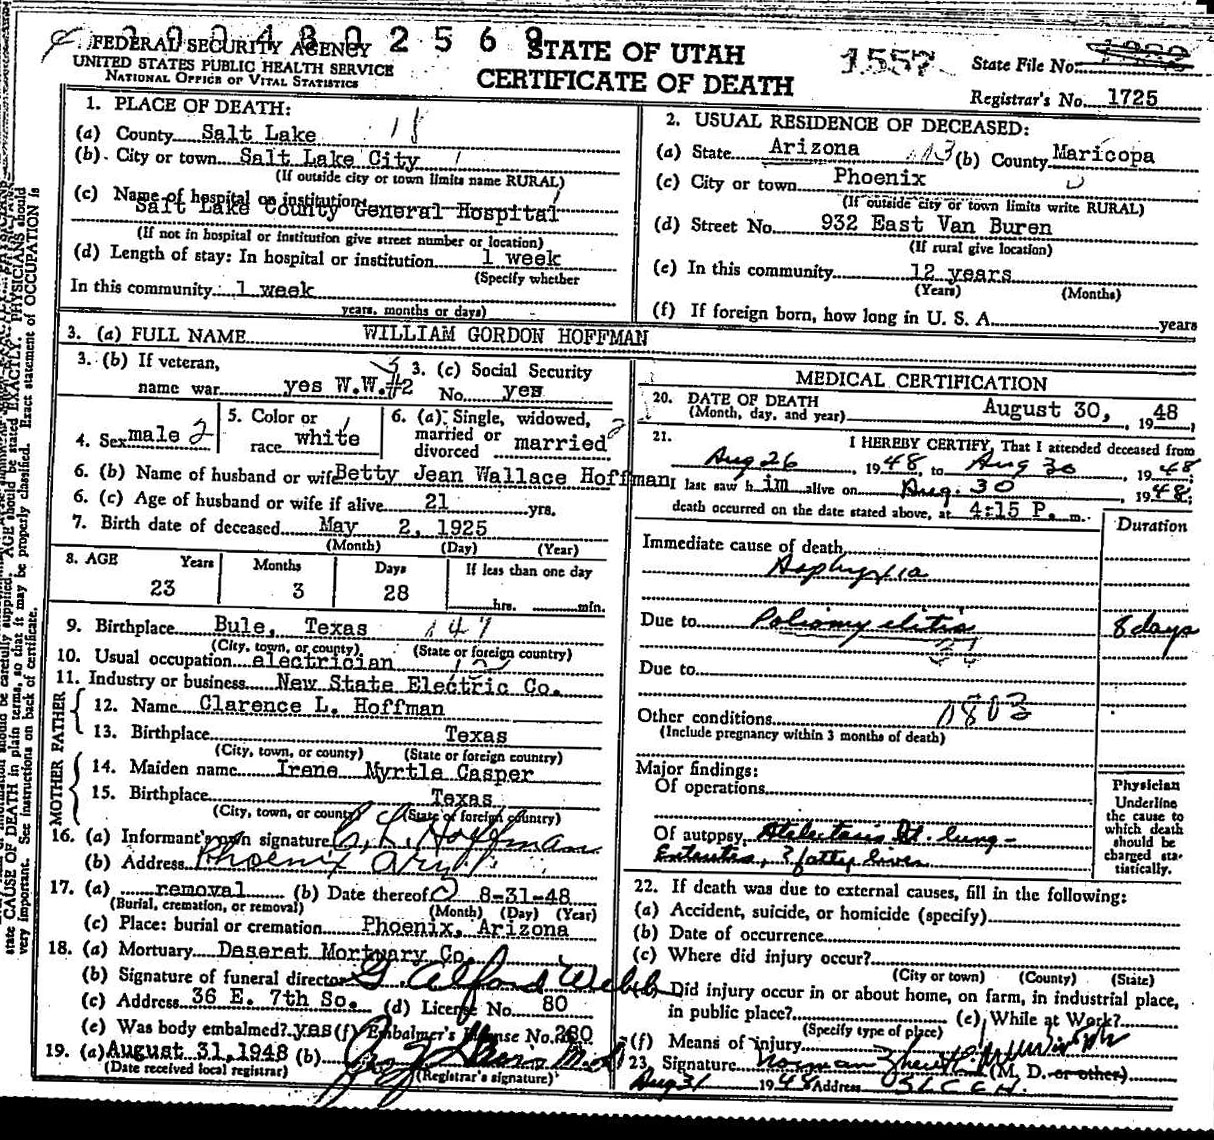 2 0 0 4 8 0 2 5 6 9
FEDERAL SECURITY AGENCY
UNITED STATES PUBLIC HEALTH SERVICE
NATIONAL OFFICE OF VITAL STATISTICS
STATE OF UTAH
CERTIFICATE OF DEATH
1557
State File No.
Registrar's No. 1725
1. PLACE OF DEATH:
(a) County Salt Lake
(b) City or town Salt Lake City
(If outside city or town limits name RURAL)
(c) Name of hospital or institution:
Salt Lake County General Hospital
(If not in hospital or institution give street number or location)
(d) Length of stay: In hospital or institution 1 week
(Specify whether
In this community 1 week
years, months or days)
2. USUAL RESIDENCE OF DECEASED:
(a) State Arizona (b) County Maricopa
(c) City or town Phoenix
(If outside city or town limits write RURAL)
(d) Street No. 932 East Van Buren
(If rural give location)
(e) In this community 12 years
(Years) (Months)
(f) If foreign born, how long in U. S. A. years
3. (a) FULL NAME WILLIAM GORDON HOFFMAN
3. (b) If veteran,
name war yes W.W.#2
3. (c) Social Security
No. yes
4. Sex male 2
5. Color or
race white
6. (a) Single, widowed,
married or
divorced married
6. (b) Name of husband or wife Betty Jean Wallace Hoffman
6. (c) Age of husband or wife if alive 21 yrs.
7. Birth date of deceased May 2, 1925
(Month) (Day) (Year)
8. AGE Years Months Days If less than one day
23 3 28 hrs. min.
9. Birthplace Bule, Texas 147
(City, town, or county) (State or foreign country)
10. Usual occupation electrician
11. Industry or business New State Electric Co.
FATHER
12. Name Clarence L. Hoffman
13. Birthplace Texas
(City, town, or county) (State or foreign country)
MOTHER
14. Maiden name Irene Myrtle Casper
15. Birthplace Texas
(City, town, or county) (State or foreign country)
16. (a) Informant's own signature C. L. Hoffman
(b) Address Phoenix Ariz.
17. (a) removal (b) Date thereof 8-31-48
(Burial, cremation, or removal) (Month) (Day) (Year)
(c) Place: burial or cremation Phoenix, Arizona
18. (a) Mortuary Daseret Mortuary Co.
(b) Signature of funeral director G. Alford Webb
(c) Address 36 E. 7th So. (d) License No. 80
(e) Was body embalmed? yes (f) Embalmer's License No. 280
19. (a) August 31, 1948 (b) M.D.
(Date received local registrar) (Registrar's signature)
MEDICAL CERTIFICATION
20. DATE OF DEATH
(Month, day, and year) August 30, 1948
21. I HEREBY CERTIFY, That I attended deceased from
Aug 26, 1948, to Aug 30, 1948
I last saw h im alive on Aug. 30 1948;
death occurred on the date stated above, at 4:15 P. m.
Duration
Immediate cause of death
Asphyxia
Due to Poliomyelitis 8 days
Due to
Other conditions 1803
(Include pregnancy within 3 months of death)
Major findings:
Of operations
Of autopsy Atelectasis Rt. lung -
Enteritis, ? fatty liver
Physician
Underline
the cause to
which death
should be
charged sta-
tistically.
22. If death was due to external causes, fill in the following:
(a) Accident, suicide, or homicide (specify)
(b) Date of occurrence
(c) Where did injury occur?
(City or town) (County) (State)
(d) Did injury occur in or about home, on farm, in industrial place,
in public place? (e) While at Work?
(Specify type of place)
(f) Means of injury
23. Signature Norman (M. D. or other)
Aug 31 1948 Address S.L.C.G.H.
state CAUSE OF DEATH in plain terms, so that it may be properly classified. Exact statement of OCCUPATION is
very important. See instructions on back of certificate.